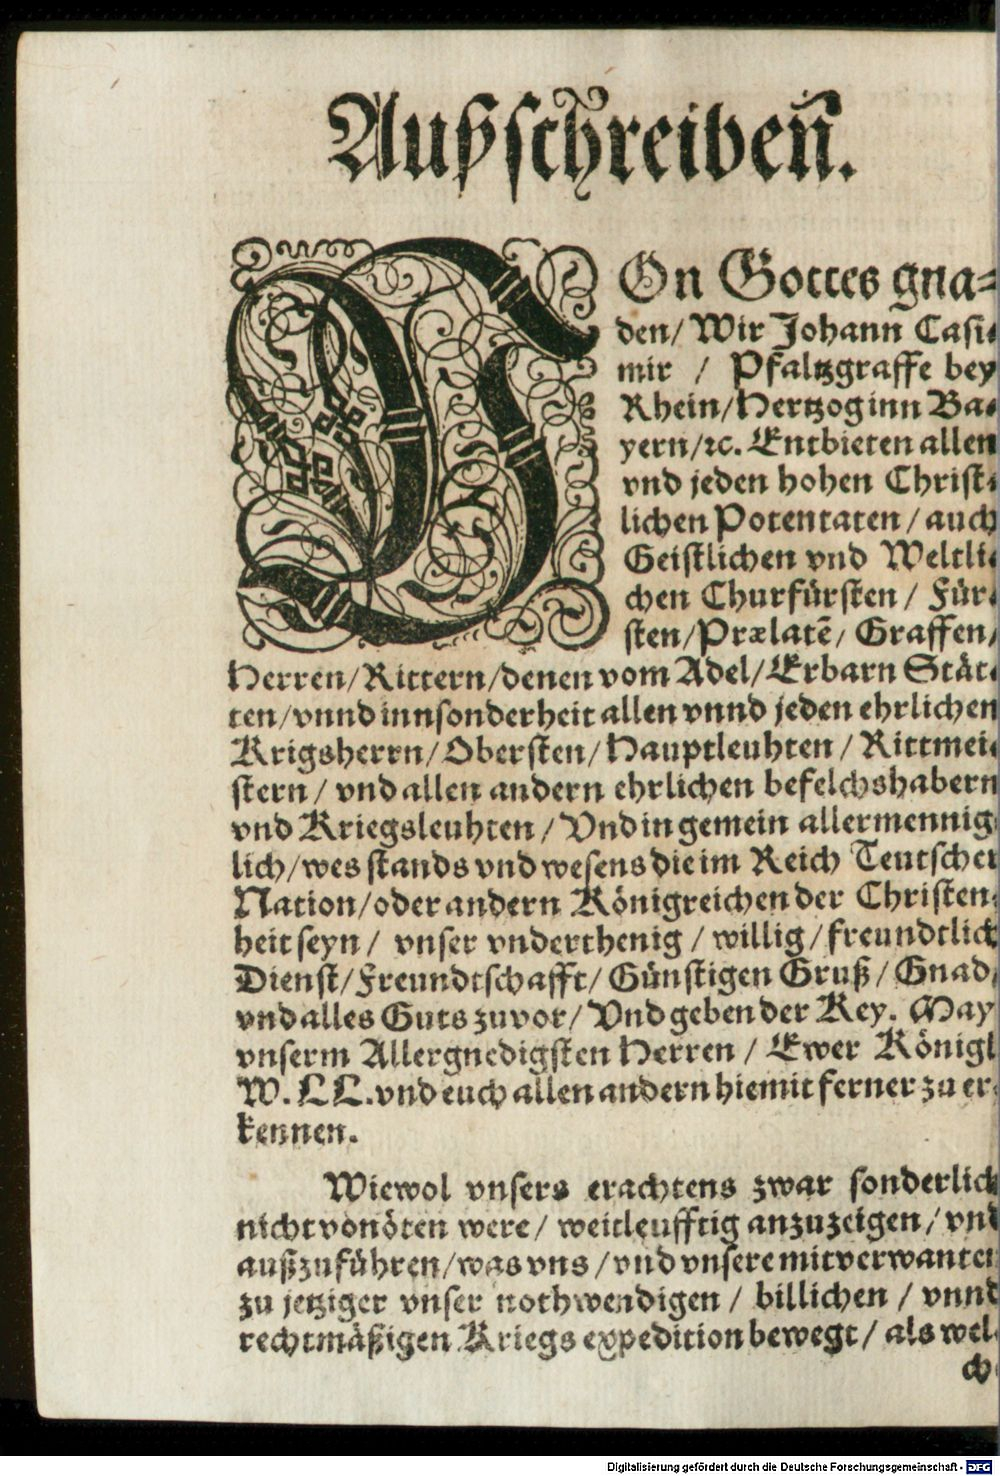 Außschreibeñ.
VOn Gottes gna⸗
den/ Wir Johann Casi⸗
mir / Pfaltzgraffe bey
Rhein/Hertzog inn Ba⸗
yern/ꝛc. Entbieten allen
vnd jeden hohen Christ⸗
lichen Potentaten / auch
Geistlichen vnd Weltli⸗
chen Churfürsten / Für⸗
sten/Prælatē/ Graffen/
Herren/Rittern/denen vom Adel/Erbarn Stät⸗
ten/vnnd innsonderheit allen vnnd jeden ehrlichen
Krigsherrn/Obersten/Hauptleuhten / Rittmei⸗
stern / vnd allen andern ehrlichen befelchshabern
vnd Kriegsleuhten / Vnd in gemein allermennig⸗
lich/wes stands vnd wesens die im Reich Teutscher
Nation/oder andern Königreichen der Christen⸗
heit seyn / vnser vnderthenig / willig/freundtlich
Dienst/Freundtschafft/ Günstigen Gruß / Gnad/
vnd alles Guts zuvor/ Vnd geben der Key. May
vnserm Allergnedigsten Herren / Ewer Königl
W. LL.vnd euch allen andern hiemit ferner zu er⸗
kennen.
Wiewol vnsers erachtens zwar sonderlich
nicht vonöten were/ weitleufftig anzuzeigen/ vnd
außzuführen/was vns /vnd vnsere mitverwanten
zu jetziger vnser nothwendigen / billichen / vnnd
rechtmäßigen Kriegs expedition bewegt/ als wel⸗
ch
Digitalisierung gefördert durch die Deutsche Forschungsgemeinschaft - DFG